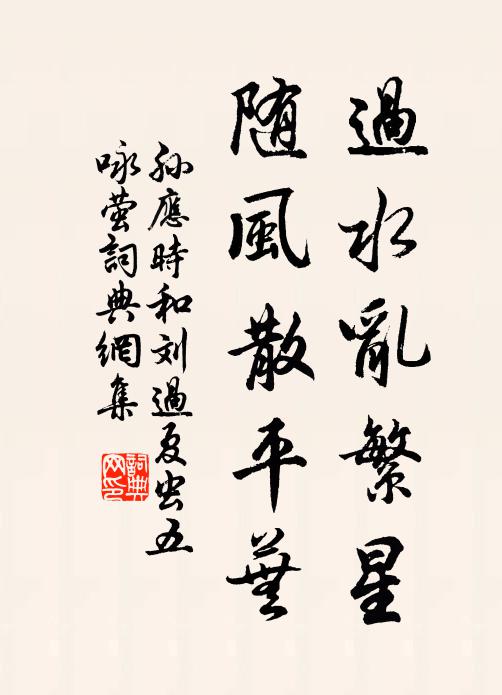 過水亂繁星
随風散平蕪
孫應時和刘過夏虫五
咏萤詞典網集
詞典网印